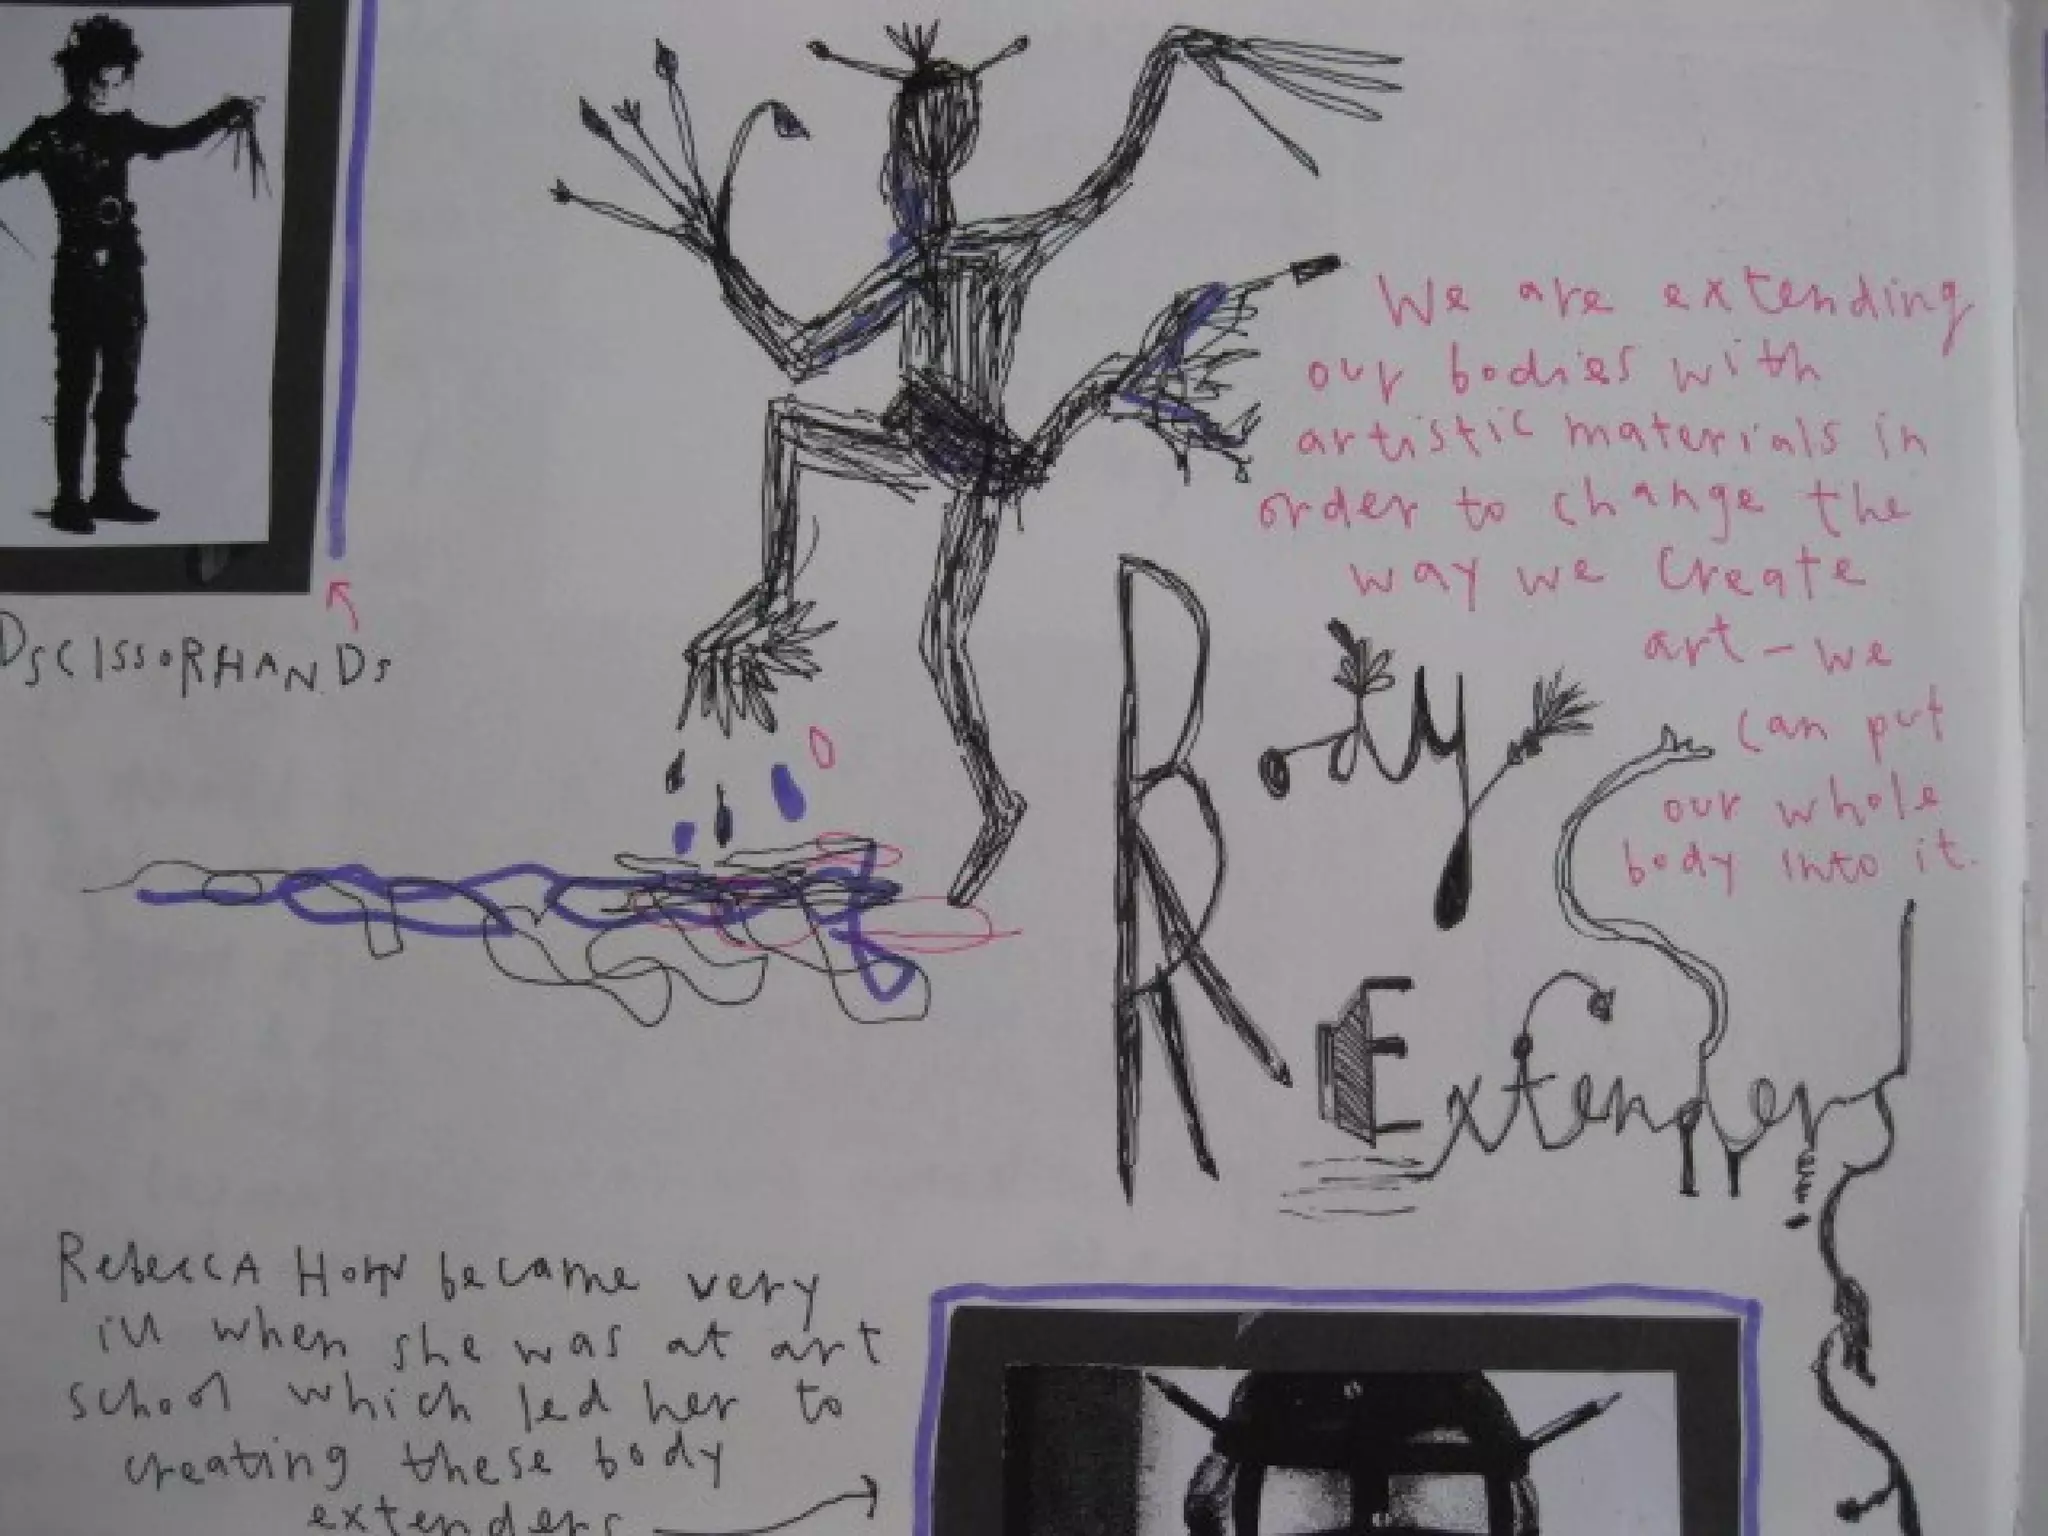 DSCISSORHANDS
We are extending
our bodies with
artistic materials in
order to change the
way we create
art - we
can put
our whole
body into it.
Body
Extenders
Rebecca Horn became very
ill when she was at art
school which led her to
creating these body
extenders